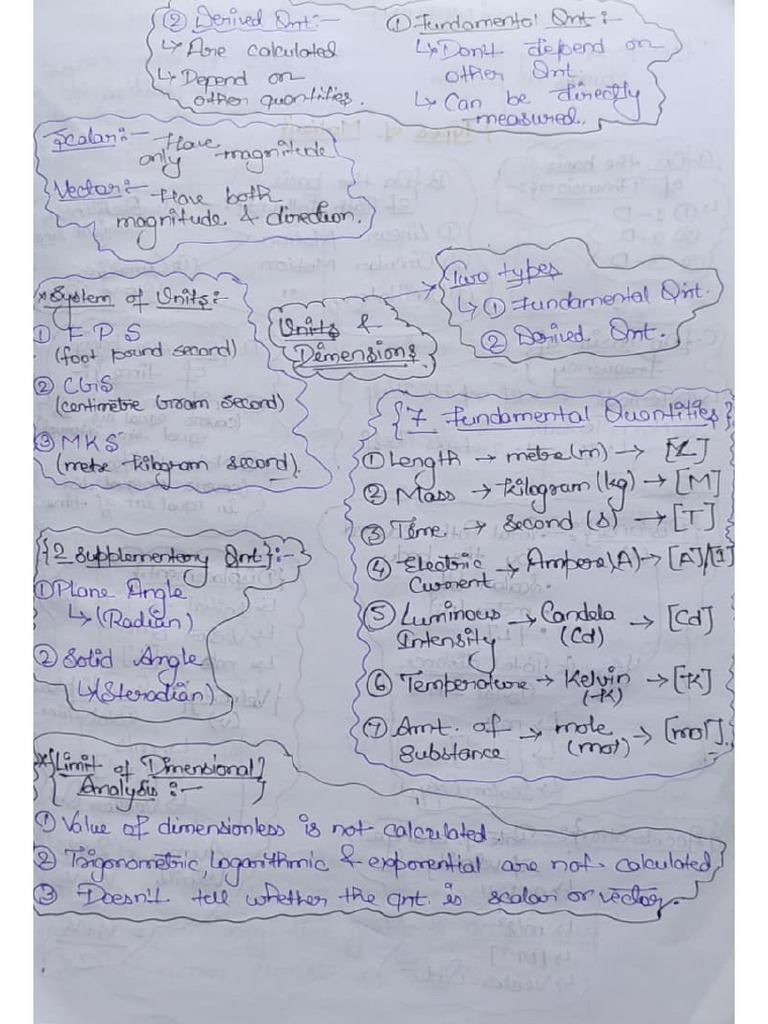 ② Derived Qnt:-
↳ Are calculated
↳ Depend on
other quantities.
① Fundamental Qnt:-
↳ Don't depend on
other Qnt.
↳ Can be directly
measured.
Scalar:- Have
only magnitude
Vector:- Have both
magnitude & direction.
Units &
Dimensions
Two types
↳ ① Fundamental Qnt.
② Derived Qnt.
*System of Units:-
① F P S
(foot pound second)
② CGS
(centimetre Gram second)
③ MKS
(metre kilogram second).
{7 Fundamental Quantities}
① Length → metre(m) → [L]
② Mass → Kilogram (kg) → [M]
③ Time → second (s) → [T]
④ Electric → Ampere(A) → [A]/[I]
Current
⑤ Luminous → Candela → [Cd]
Intensity (Cd)
⑥ Temperature → Kelvin → [K]
(K)
⑦ Amt. of → mole → [mol].
substance (mol)
{2 Supplementory Qnt}:-
① Plane Angle
↳ (Radian)
② Solid Angle
↳ (Steradian)
*{Limit of Dimensional
Analysis :- }
① Value of dimensionless is not calculated.
② Trigonometric, Logarithmic & exponential are not calculated
③ Doesn't tell whether the qnt. is scalar or vector.